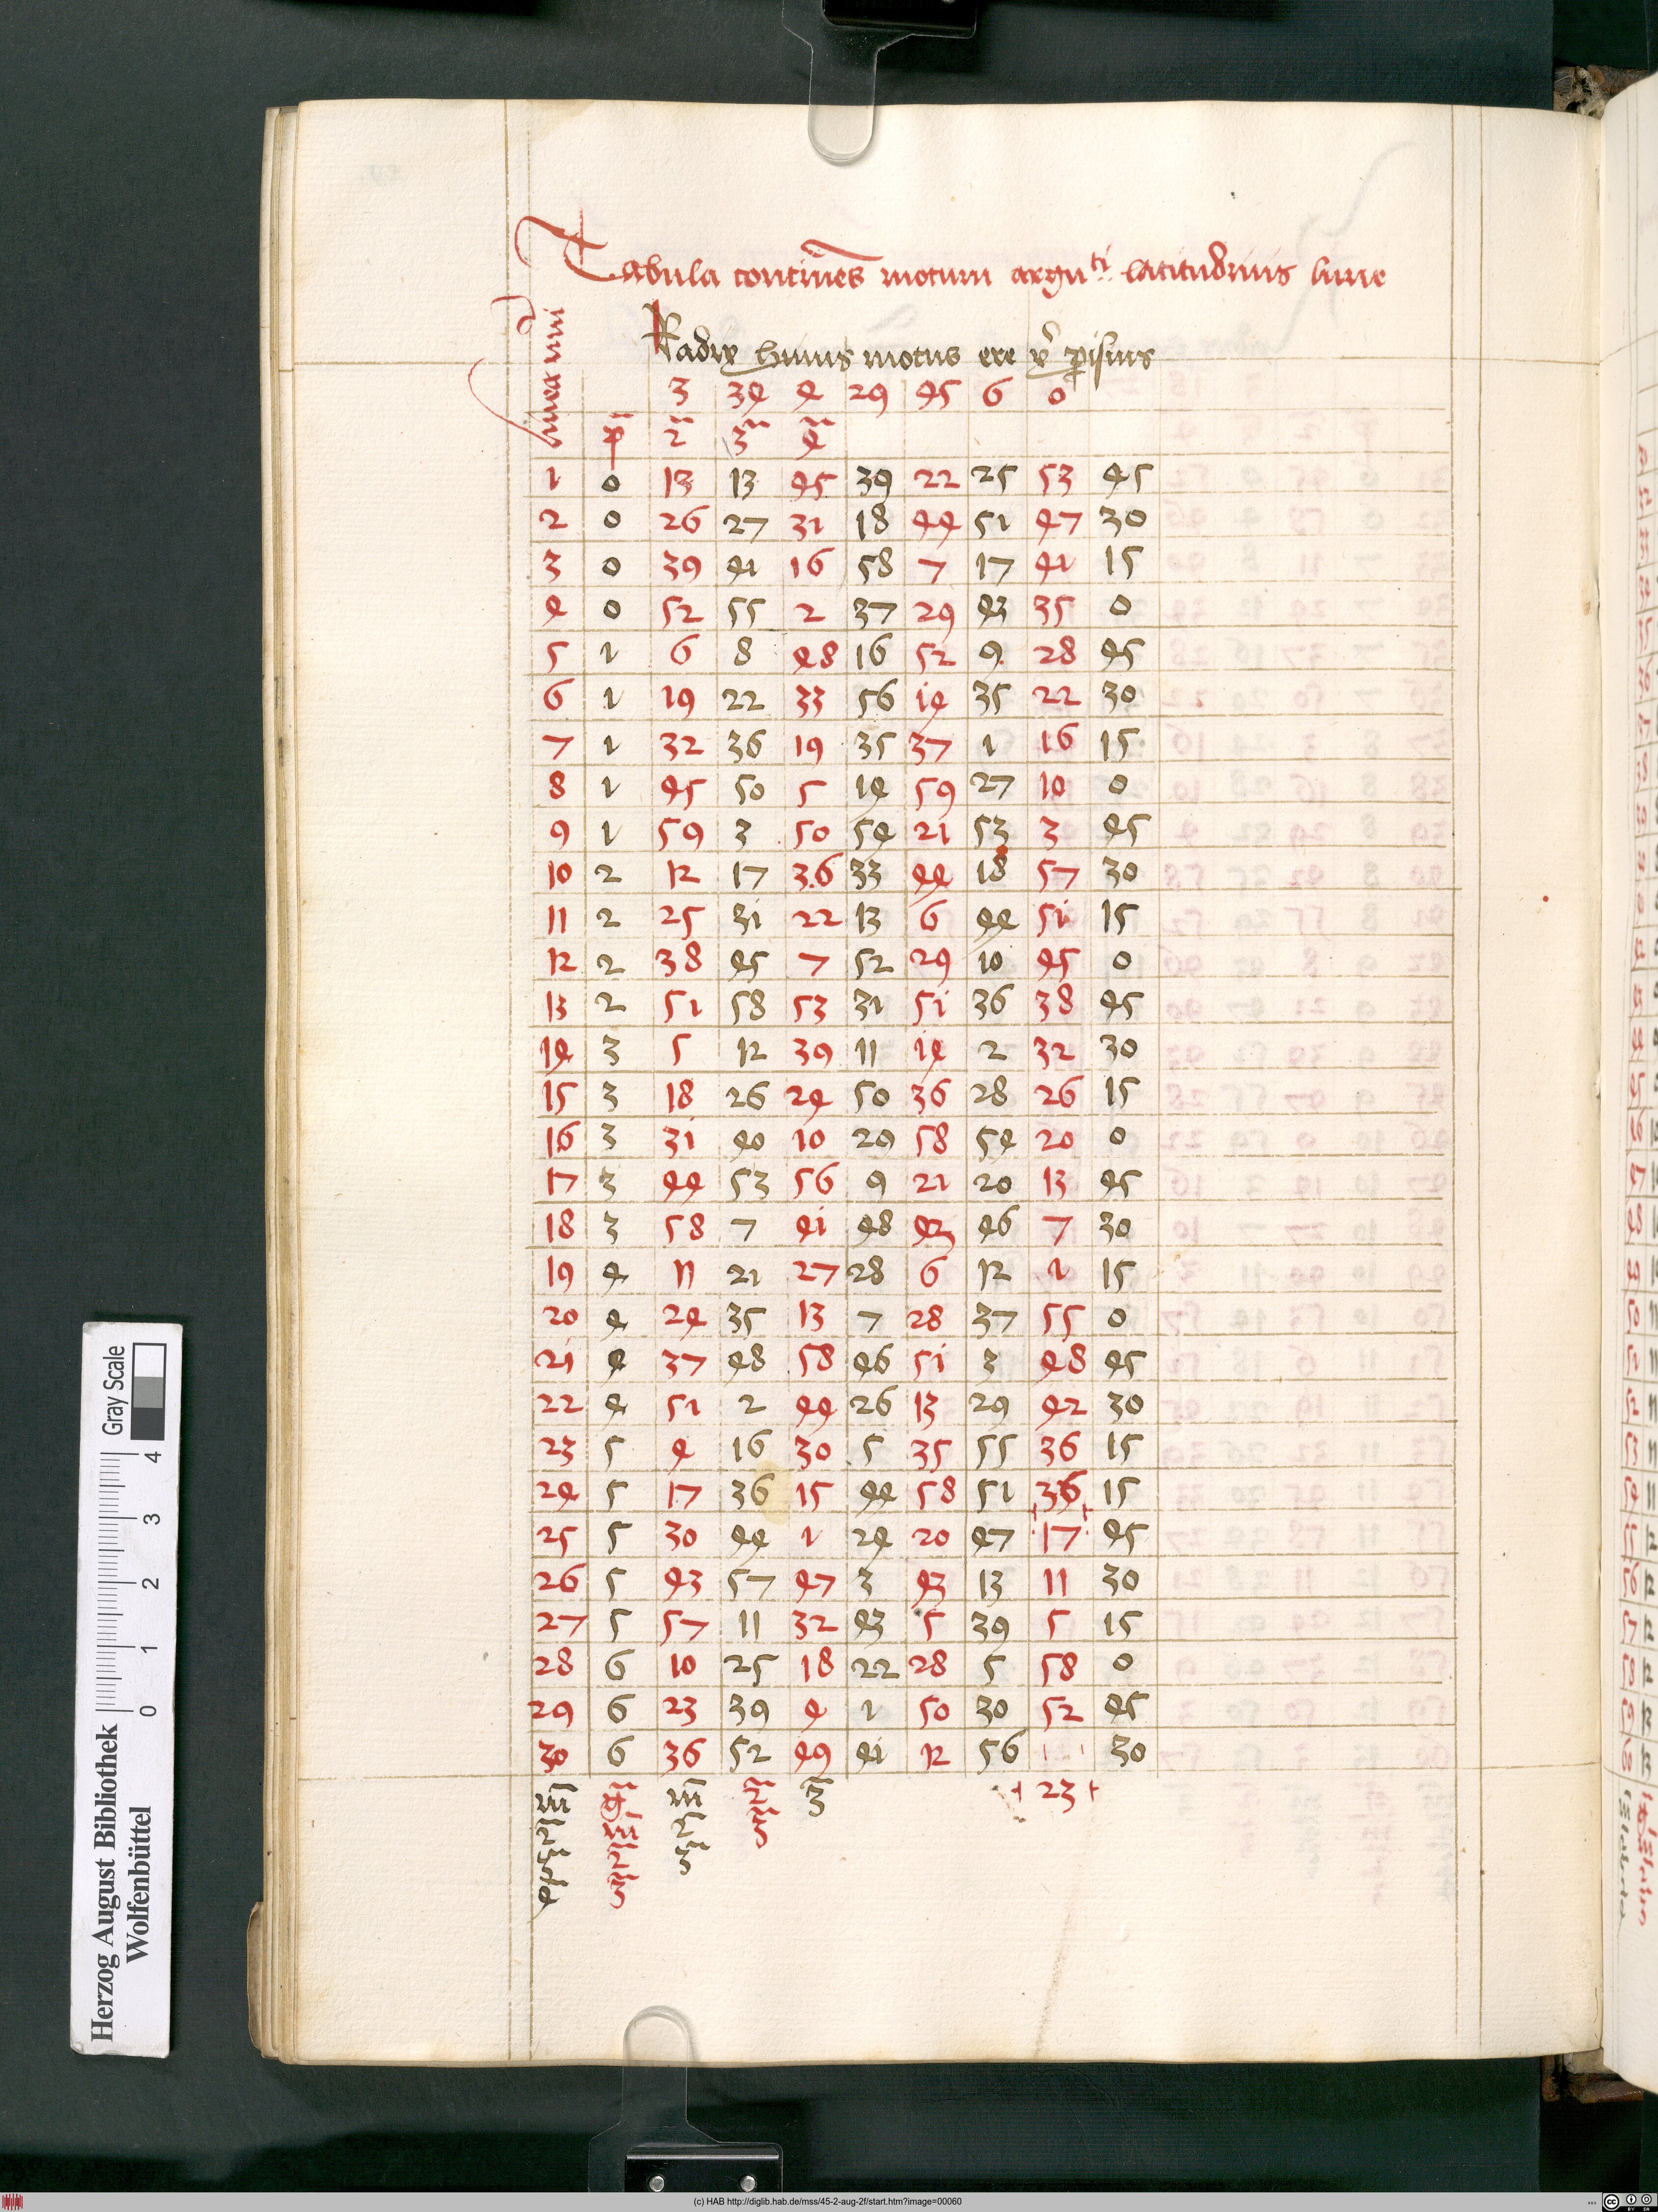 Tabula continēs motum argu^ti latitudinis lune
Radix huius motus ere xᵉ
linea
3 34 4 29 45 6 0
1 0 13 13 45 39 22 25 53 45
2 0 26 27 31 18 44 51 47 30
3 0 39 41 16 58 7 17 41 15
4 0 52 55 2 37 29 43 35 0
5 1 6 8 48 16 52 9 28 45
6 1 19 22 33 56 14 35 22 30
7 1 32 36 19 35 37 1 16 15
8 1 45 50 5 14 59 27 10 0
9 1 59 3 50 54 21 53 3 45
10 2 12 17 36 33 44 18 57 30
11 2 25 31 22 13 6 44 51 15
12 2 38 45 7 52 29 10 45 0
13 2 51 58 53 31 51 36 38 45
14 3 5 12 39 11 14 2 32 30
15 3 18 26 24 50 36 28 26 15
16 3 31 40 10 29 58 54 20 0
17 3 44 53 56 9 21 20 13 45
18 3 58 7 41 48 43 46 7 30
19 4 11 21 27 28 6 12 1 15
20 4 24 35 13 7 28 37 55 0
21 4 37 48 58 46 51 3 48 45
22 4 51 2 44 26 13 29 42 30
23 5 4 16 30 5 35 55 36 15
24 5 17 36 15 44 58 51 36 15
25 5 30 44 1 24 20 47 17 45
26 5 43 57 47 3 43 13 11 30
27 5 57 11 32 43 5 39 5 15
28 6 10 25 18 22 28 5 58 0
29 6 23 39 4 1 50 30 52 45
30 6 36 52 49 41 12 56 30
+ 23 +
Herzog August Bibliothek
Wolfenbüttel
0 1 2 3 4
Gray Scale
(c) HAB http://diglib.hab.de/mss/45-2-aug-2f/start.htm?image=00060